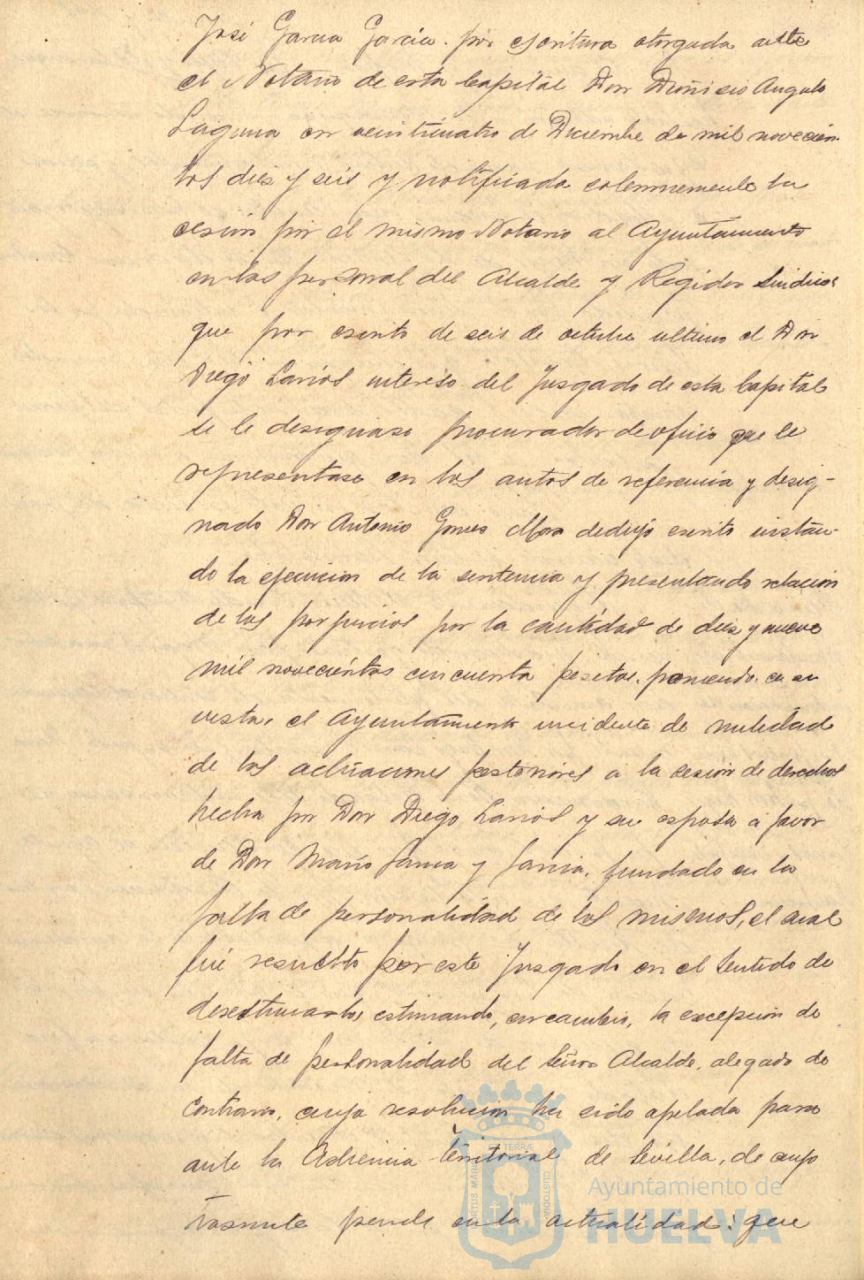 José Garcia Garcia. por escritura otorgada ante
el Notario de esta Capital Don Dionisio Angulo
Laguna en veinticuatro de Diciembre de mil novecien-
tos diez y seis y notificada solemnemente la
cesión por el mismo Notario al Ayuntamiento
en las personas del Alcalde y Regidor Sindico:
que por escrito de seis de octubre ultimo el Don
Diego Larios intereso del Jusgado de esta Capital
se le designase procurador de oficio que le
representase en los autos de referencia y desig-
nado Don Antonio Gomez Mora dedujo escrito instan-
do la ejecucion de la sentencia y presentando relacion
de los perjuicios por la cantidad de diez y nueve
mil novecientas cincuenta pesetas, poniendo, en su
vista, el Ayuntamiento incidente de nulidad
de las actuaciones posteriores a la cesion de derechos
hecha por Don Diego Larios y su esposa a favor
de Don Mario Garcia y Garcia, fundado en la
falta de personalidad de los mismos, el cual
fué resuelto por este Jusgado en el sentido de
desestimarlo, estimando, en cambio, la excepcion de
falta de personalidad del Señor Alcalde, alegado de
contrario, cuya resolucion ha sido apelada para
ante la Audiencia Territorial de Sevilla, de cuyo
tramite pende en la actualidad: que
Ayuntamiento de
HUELVA